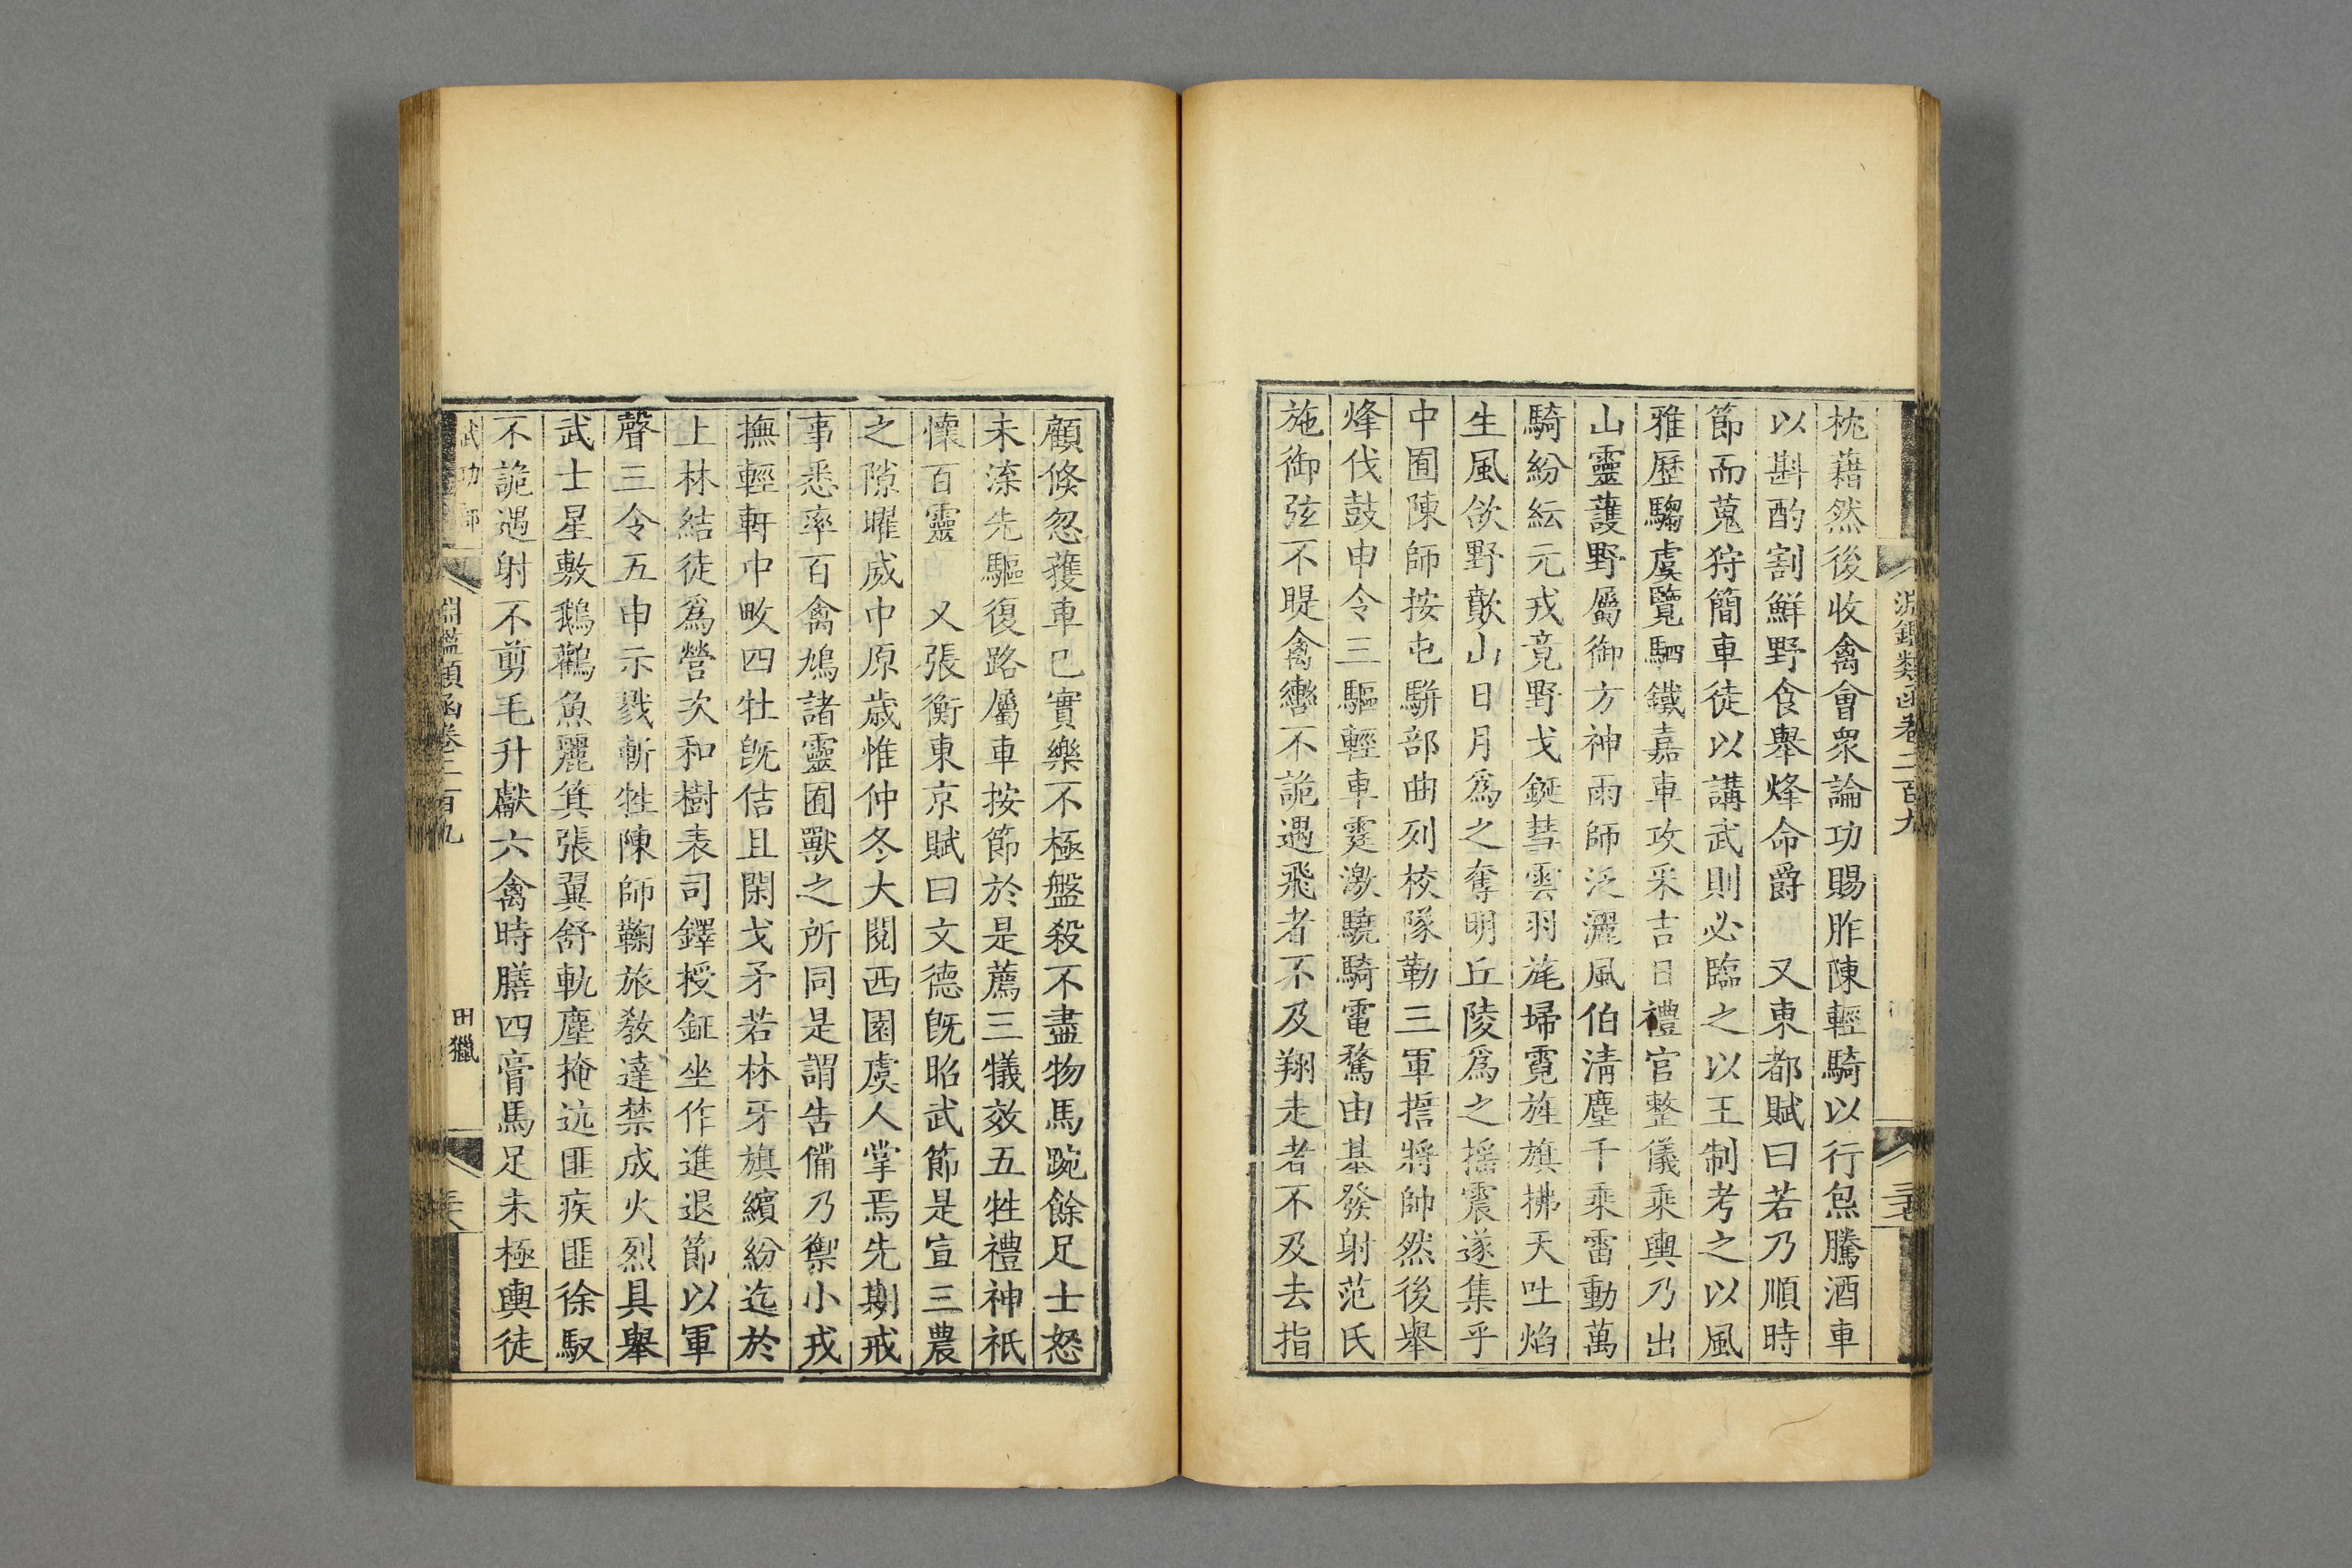 淵鑑類函卷二百九
枕藉然後收禽會衆論功賜胙陳輕騎以行炰騰酒車
以斟酌割鮮野食舉烽命爵 又東都賦曰若乃順時
節而蒐狩簡車徒以講武則必臨之以王制考之以風
雅歷騶虞覽駟鐵嘉車攻采吉日禮官整儀乘輿乃出
山靈護野屬御方神雨師泛灑風伯清塵千乘雷動萬
騎紛紜元戎竟野戈鋋彗雲羽旄掃霓旌旗拂天吐焰
生風欱野歕山日月爲之奪明丘陵爲之搖震遂集乎
中囿陳師按屯騈部曲列校隊勒三軍誓將帥然後舉
烽伐鼓申令三驅輕車霆激驍騎電騖由基發射范氏
施御弦不睼禽轡不詭遇飛者不及翔走者不及去指
顧倐忽獲車已實樂不極盤殺不盡物馬踠餘足士怒
未渫先驅復路屬車按節於是薦三犧效五牲禮神祇
懷百靈 又張衡東京賦曰文德旣昭武節是宣三農
之隙曜威中原歲惟仲冬大閱西園虞人掌焉先期戒
事悉率百禽鳩諸靈囿獸之所同是謂告備乃禦小戎
撫輕軒中畋四牡旣佶且閑戈矛若林牙旗繽紛迄於
上林結徒爲營次和樹表司鐸授鉦坐作進退節以軍
聲三令五申示戮斬牲陳師鞠旅敎達禁成火烈具舉
武士星敷鵝鸛魚麗箕張翼舒軌塵掩迒匪疾匪徐馭
不詭遇射不剪毛升獻六禽時膳四膏馬足未極輿徒
武功部
淵鑑類函卷二百九
田獵